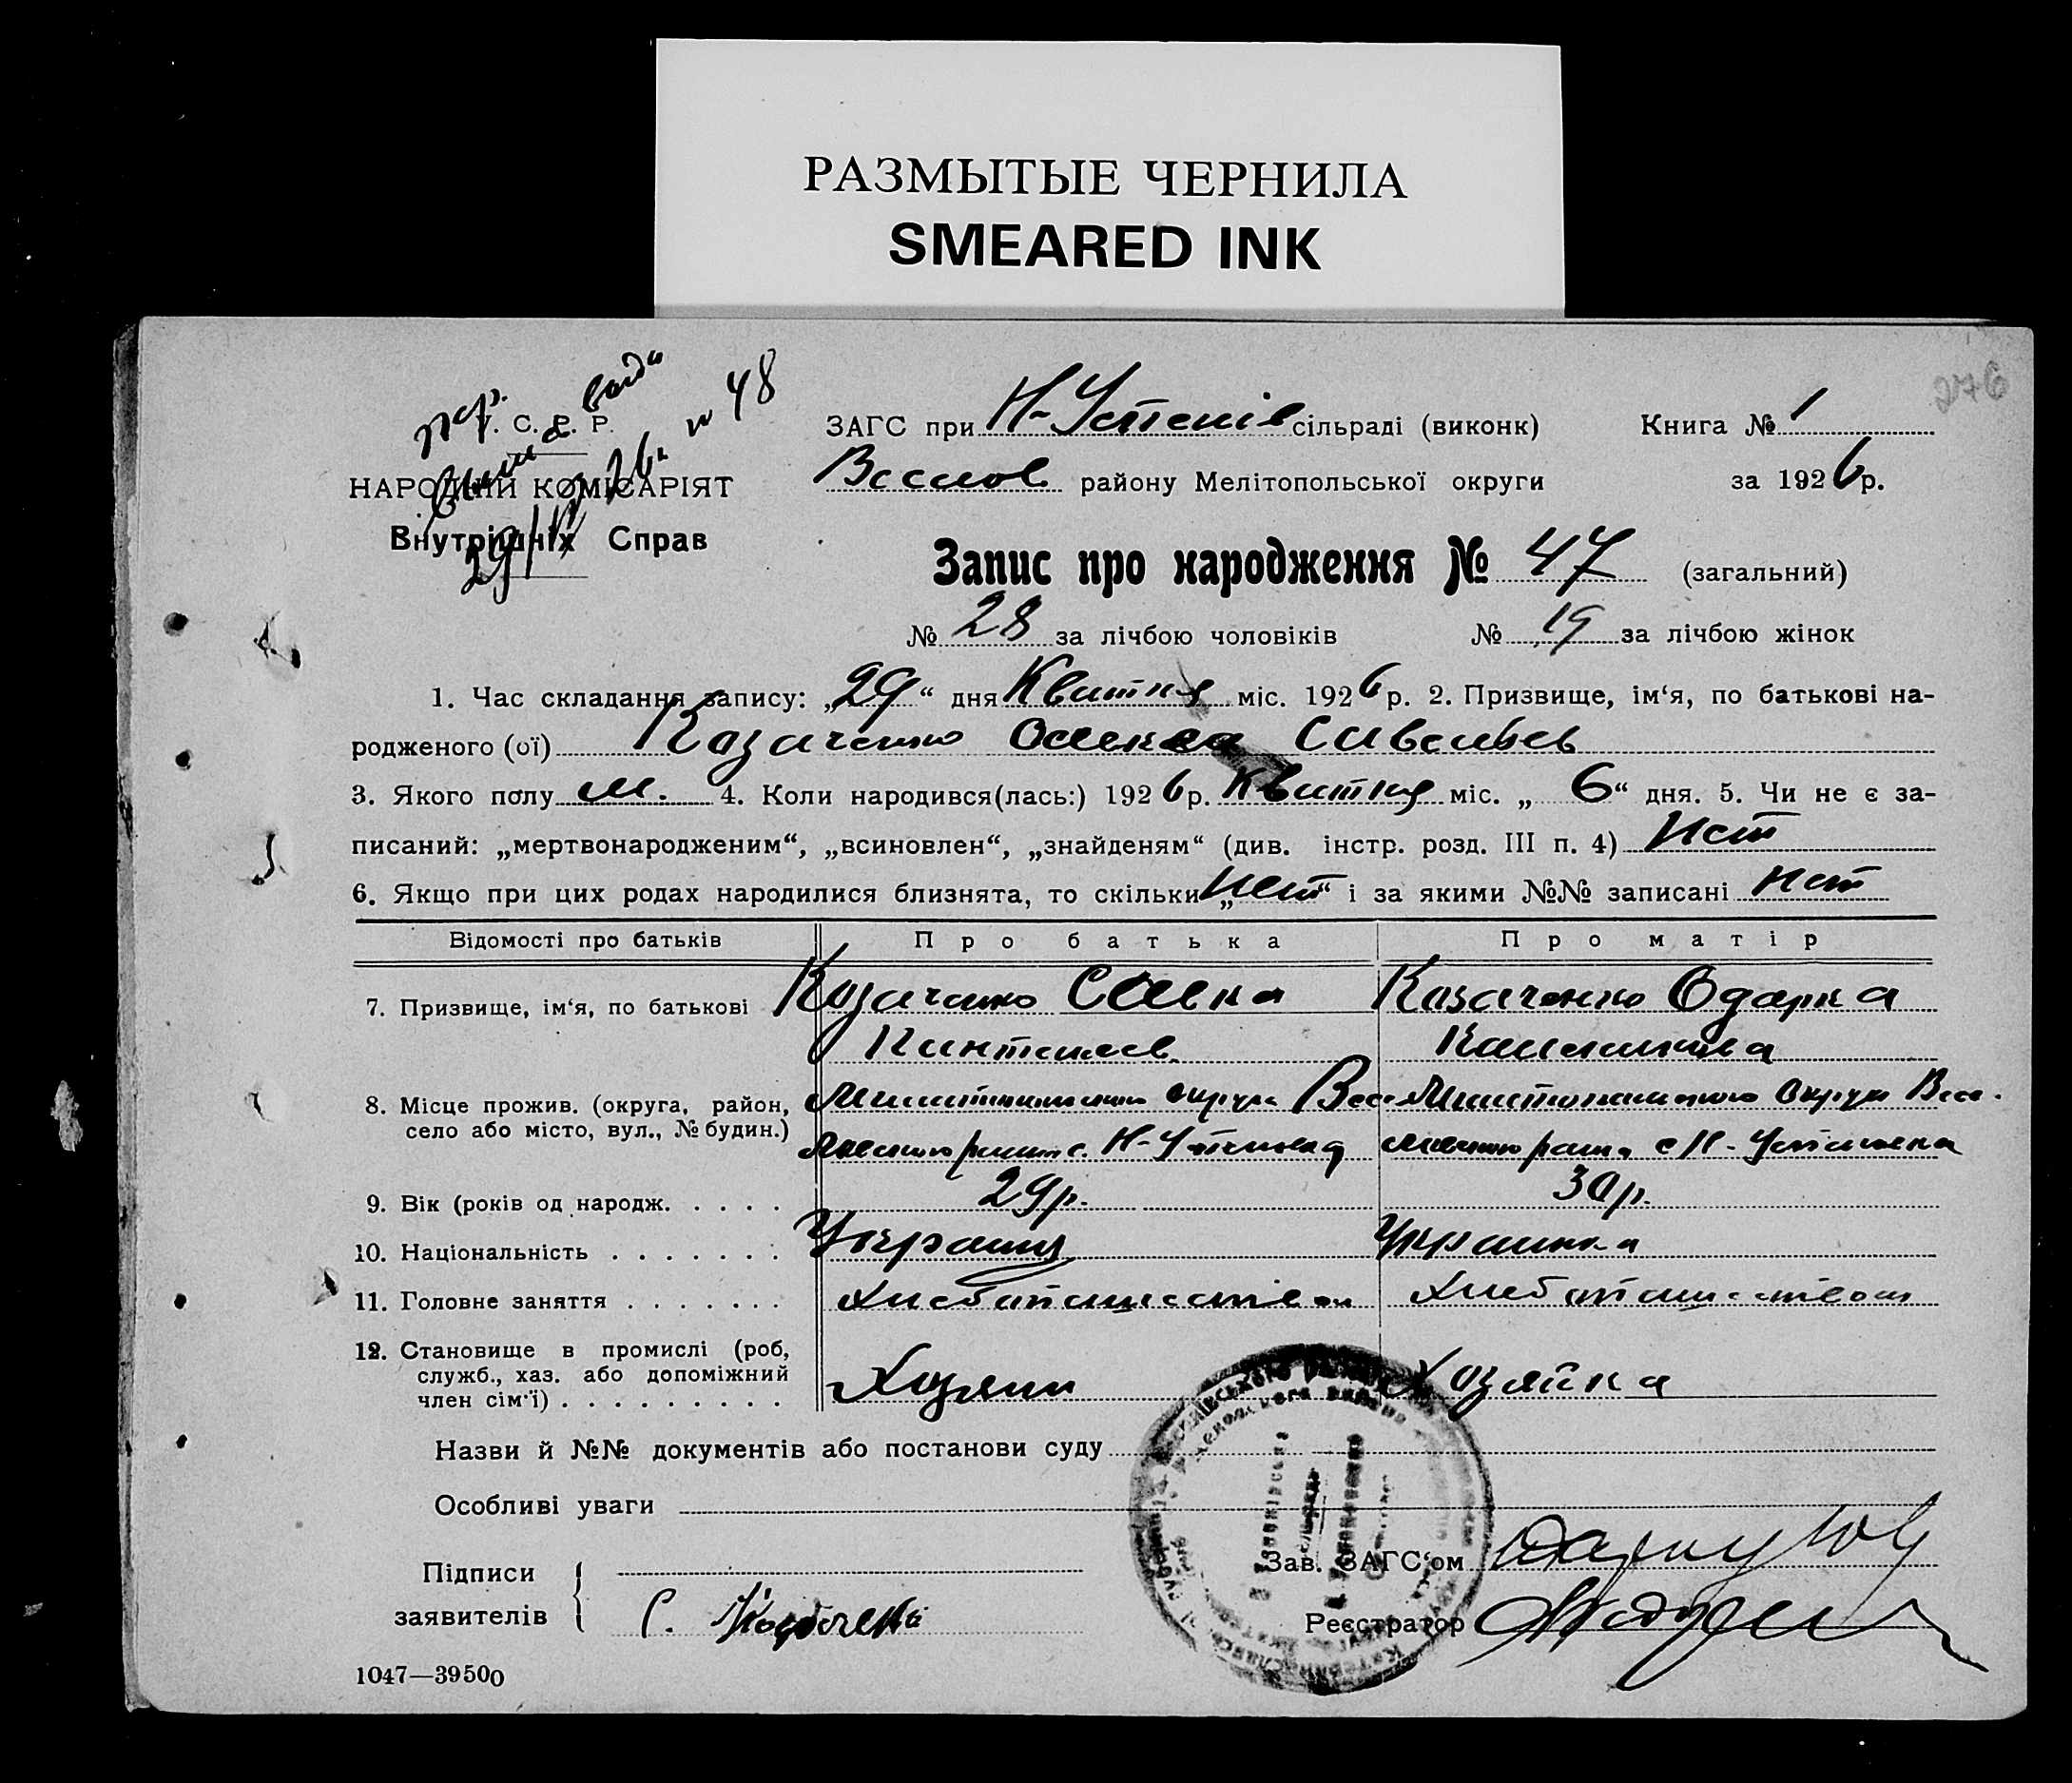 РАЗМЫТЫЕ ЧЕРНИЛА
SMEARED INK
276
У. С. Р. Р.
№ 48
ЗАГС при Н-Успенів сільраді (виконк) Книга № 1
НАРОДНИЙ КОМІСАРІЯТ
Веселов району Мелітопольської округи за 1926 р.
Внутрішніх Справ
29/IV 26.
Запис про народження № 47 (загальний)
№ 28 за лічбою чоловіків № 19 за лічбою жінок
1. Час складання запису: „29“ дня Квитня міс. 1926 р. 2. Призвище, ім‘я, по батькові на-
родженого (ої) Казаченко Олекса Савельев
3. Якого полу м. 4. Коли народився(лась:) 1926 р. Квитня міс. „6“ дня. 5. Чи не є за-
писаний: „мертвонародженим“, „всиновлен“, „знайденям“ (див. інстр. розд. III п. 4) Нет
6. Якщо при цих родах народилися близнята, то скільки „нет“ і за якими №№ записані нет
Відомості про батьків Про батька Про матір
7. Призвище, ім‘я, по батькові Казаченко Савка Казаченко Одарка
8. Місце прожив. (округа, район, село або місто, вул., № будин.)
9. Вік (років од народж. . . . . 29 р. 30 р.
10. Національність . . . . . . . Украинц Украинка
11. Головне заняття . . . . . . .
12. Становище в промислі (роб, служб., хаз. або допоміжний член сім‘ї) . . . . . . . . . Хозяин Хозяйка
Назви й №№ документів або постанови суду
Особливі уваги
Підписи
заявителів
С. Казачен
Зав. ЗАГС‘ом
Реєстратор
1047—39500